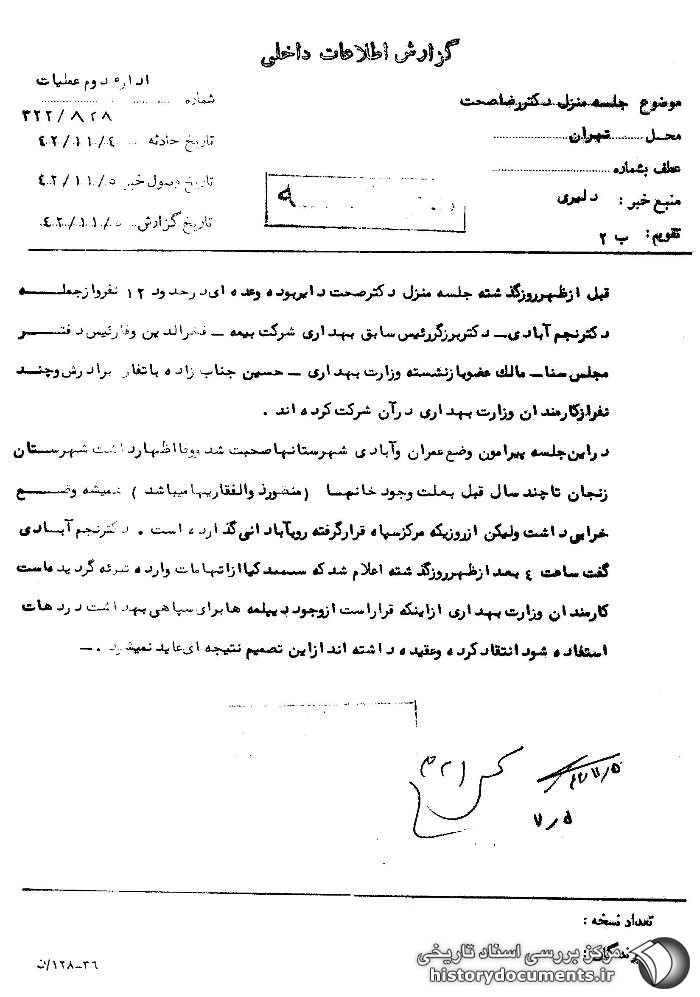 گزارش اطلاعات داخلی
اداره دوم عملیات
موضوع جلسه منزل دکتر رضا صحت
شماره
۳۲۲/۸۲۸
محل تهران
تاریخ حادثه ۴۲/۱۱/۴
عطف بشماره
تاریخ وصول خبر ۴۲/۱۱/۵
منبع خبر : دلیری
تاریخ گزارش ۴۲/۱۱/۵
تقویم : ب ۲
قبل از ظهر روز گذشته جلسه منزل دکتر صحت دایر بوده وعده ای در حدود ۱۲ نفر و از جمله
دکتر نجم آبادی - دکتر برزگر رئیس سابق بهداری شرکت بیمه - فخرالدین وفا رئیس دفتر
مجلس سنا - مالک عضو بازنشسته وزارت بهداری - حسین جناب زاده باتفاق برادرش وچند
نفر از کارمندان وزارت بهداری در آن شرکت کرده اند .
در این جلسه پیرامون وضع عمران وآبادی شهرستانها صحبت شد ووفا اظهار داشت شهرستان
زنجان تا چند سال قبل بعلت وجود خانها (منظور ذوالفقاریها میباشد) همیشه وضع
خرابی داشت ولیکن از روزیکه مرکز سپاه قرار گرفته رو بآبادانی گذارده است . دکتر نجم آبادی
گفت ساعت ٤ بعد از ظهر روز گذشته اعلام شد که کیا از اتهامات وارده تبرئه گردیده است
کارمندان وزارت بهداری از اینکه قرار است از وجود دیپلمه ها برای سپاهی بهداشت در دهات
استفاده شود انتقاد کرده وعقیده داشته اند از این تصمیم نتیجه ای عاید نمیشود . -
۴۲/۱۱/۵
۷/۵
تعداد نسخه :
گیرندگان :
۳۶-۱۲۸/ن
مرکز بررسی اسناد تاریخی
historydocuments.ir